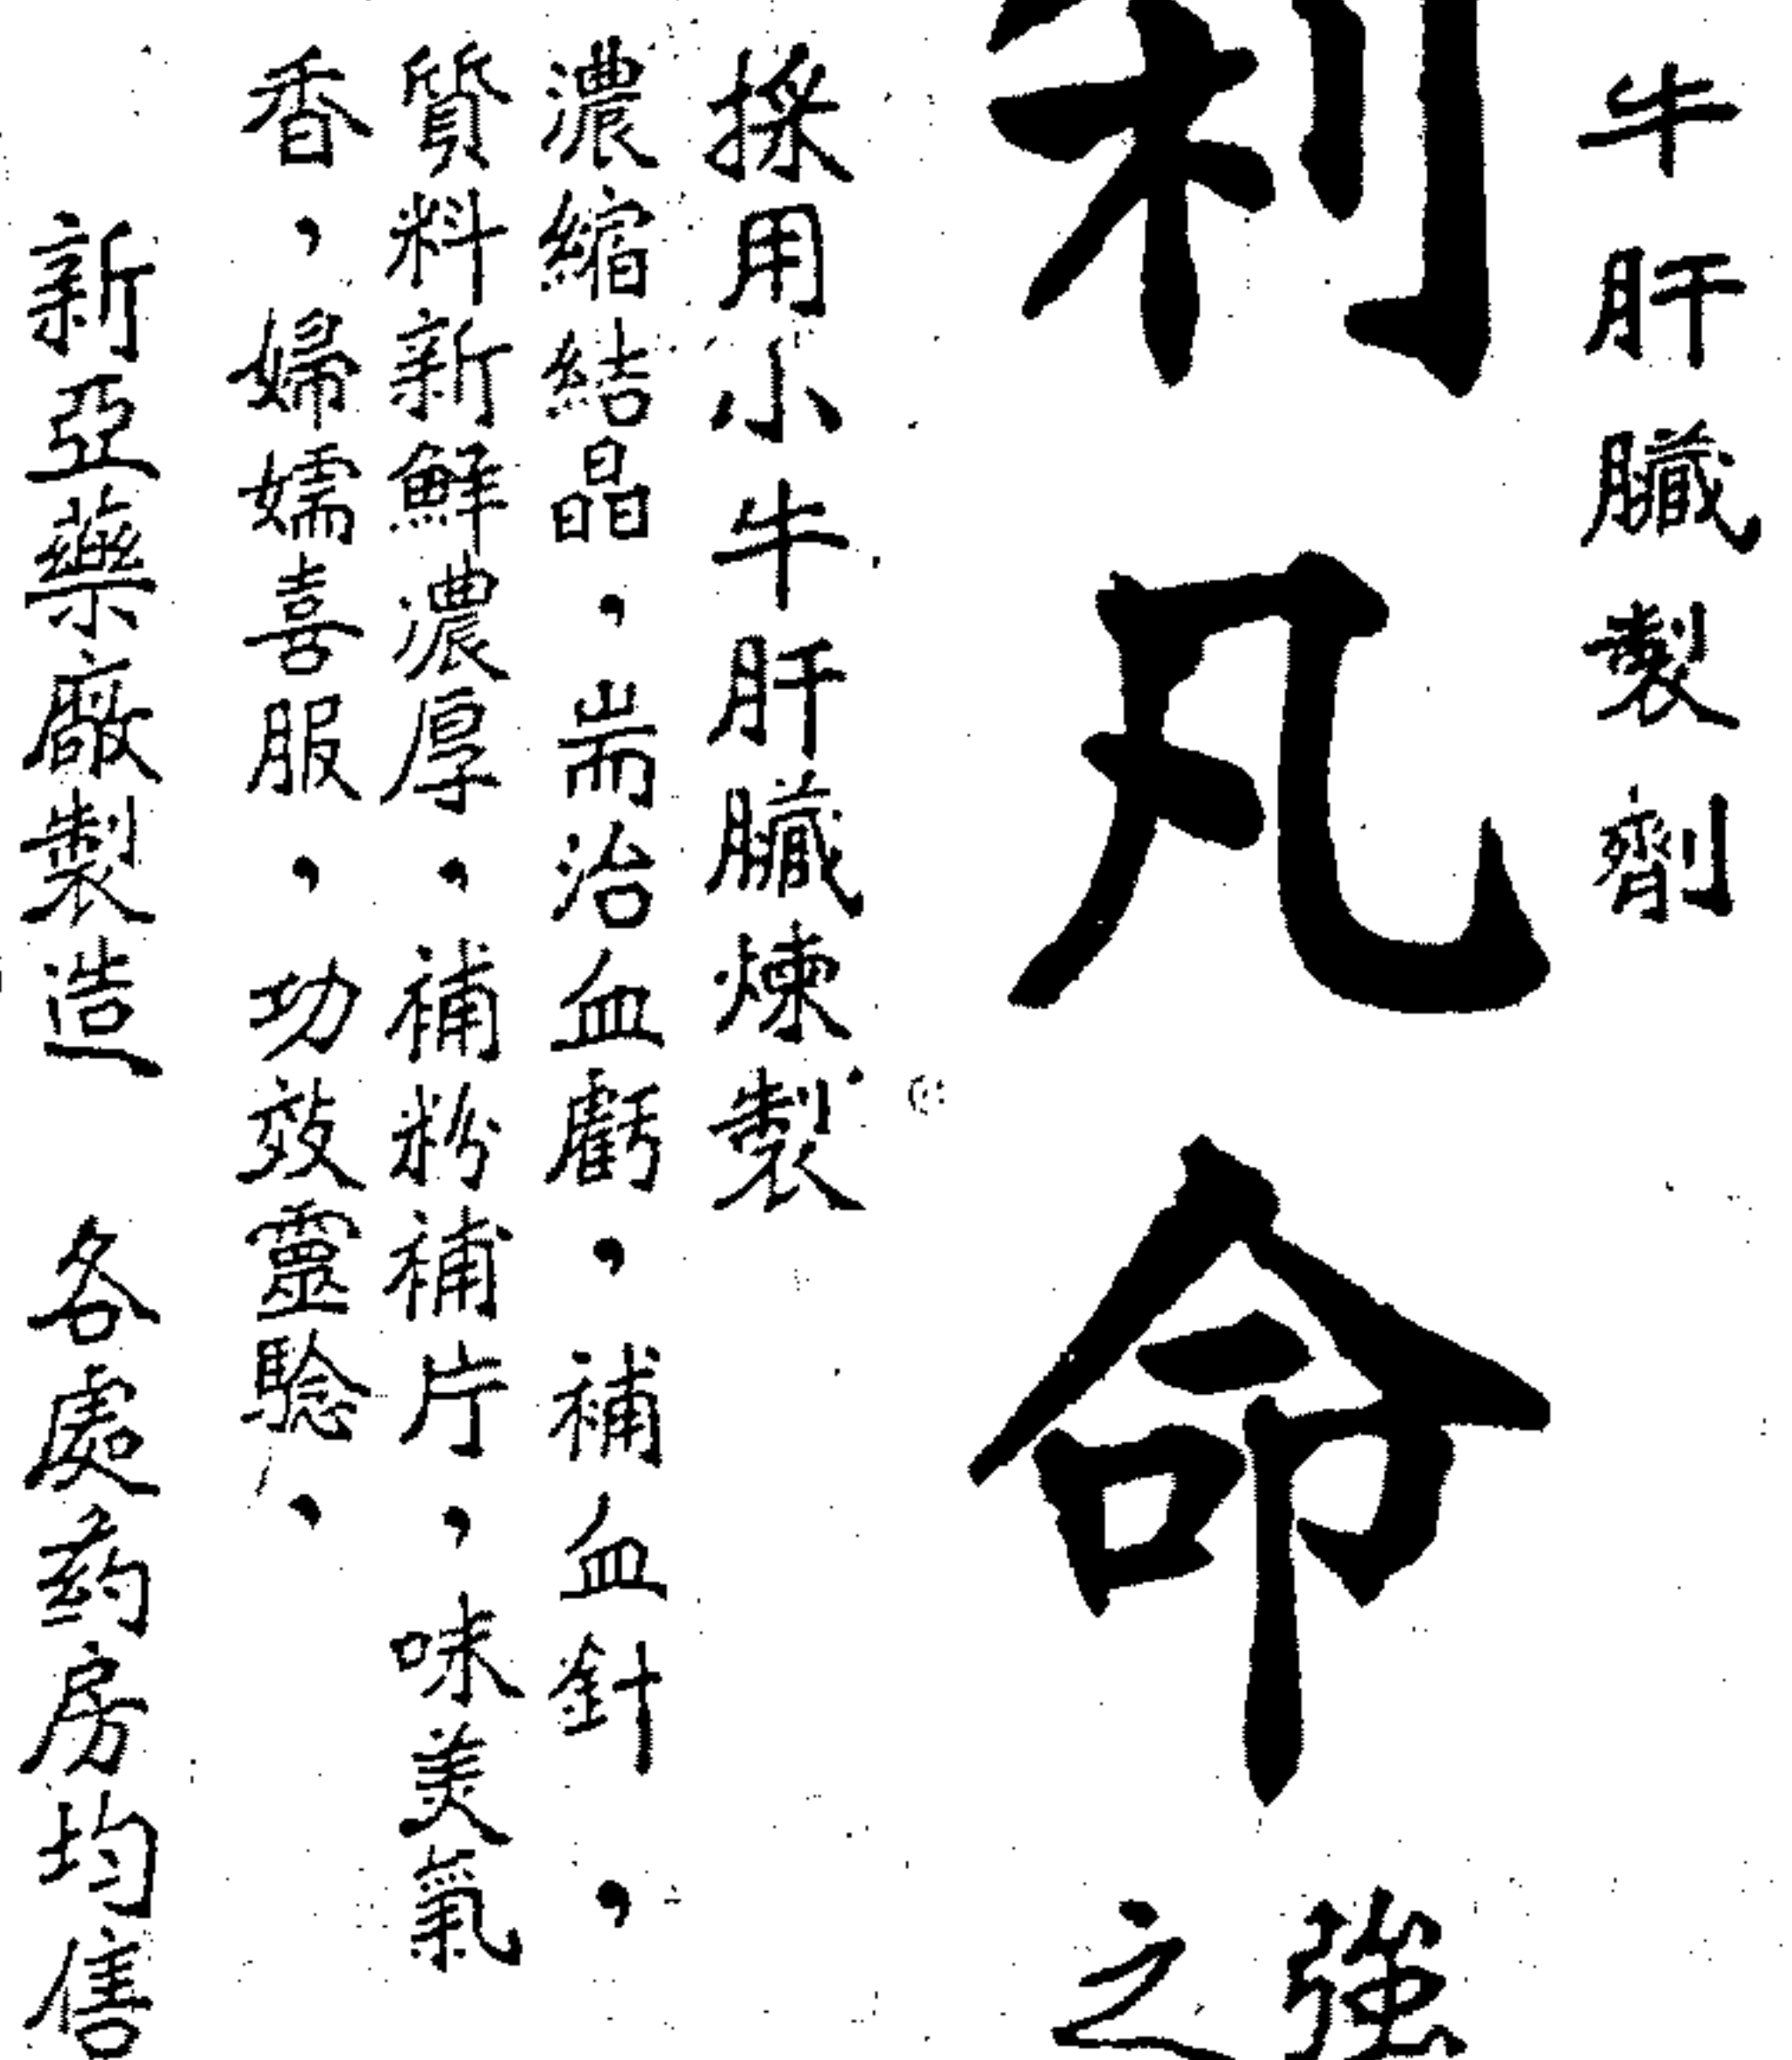 牛肝臟製劑
利凡命
強
之
採用小牛肝臟煉製
濃縮結晶，耑治血虧，補血針，
質料新鮮濃厚，補粉補片，味美氣
香，婦孺喜服，功效靈驗、
新亞藥廠製造 各處葯房均售